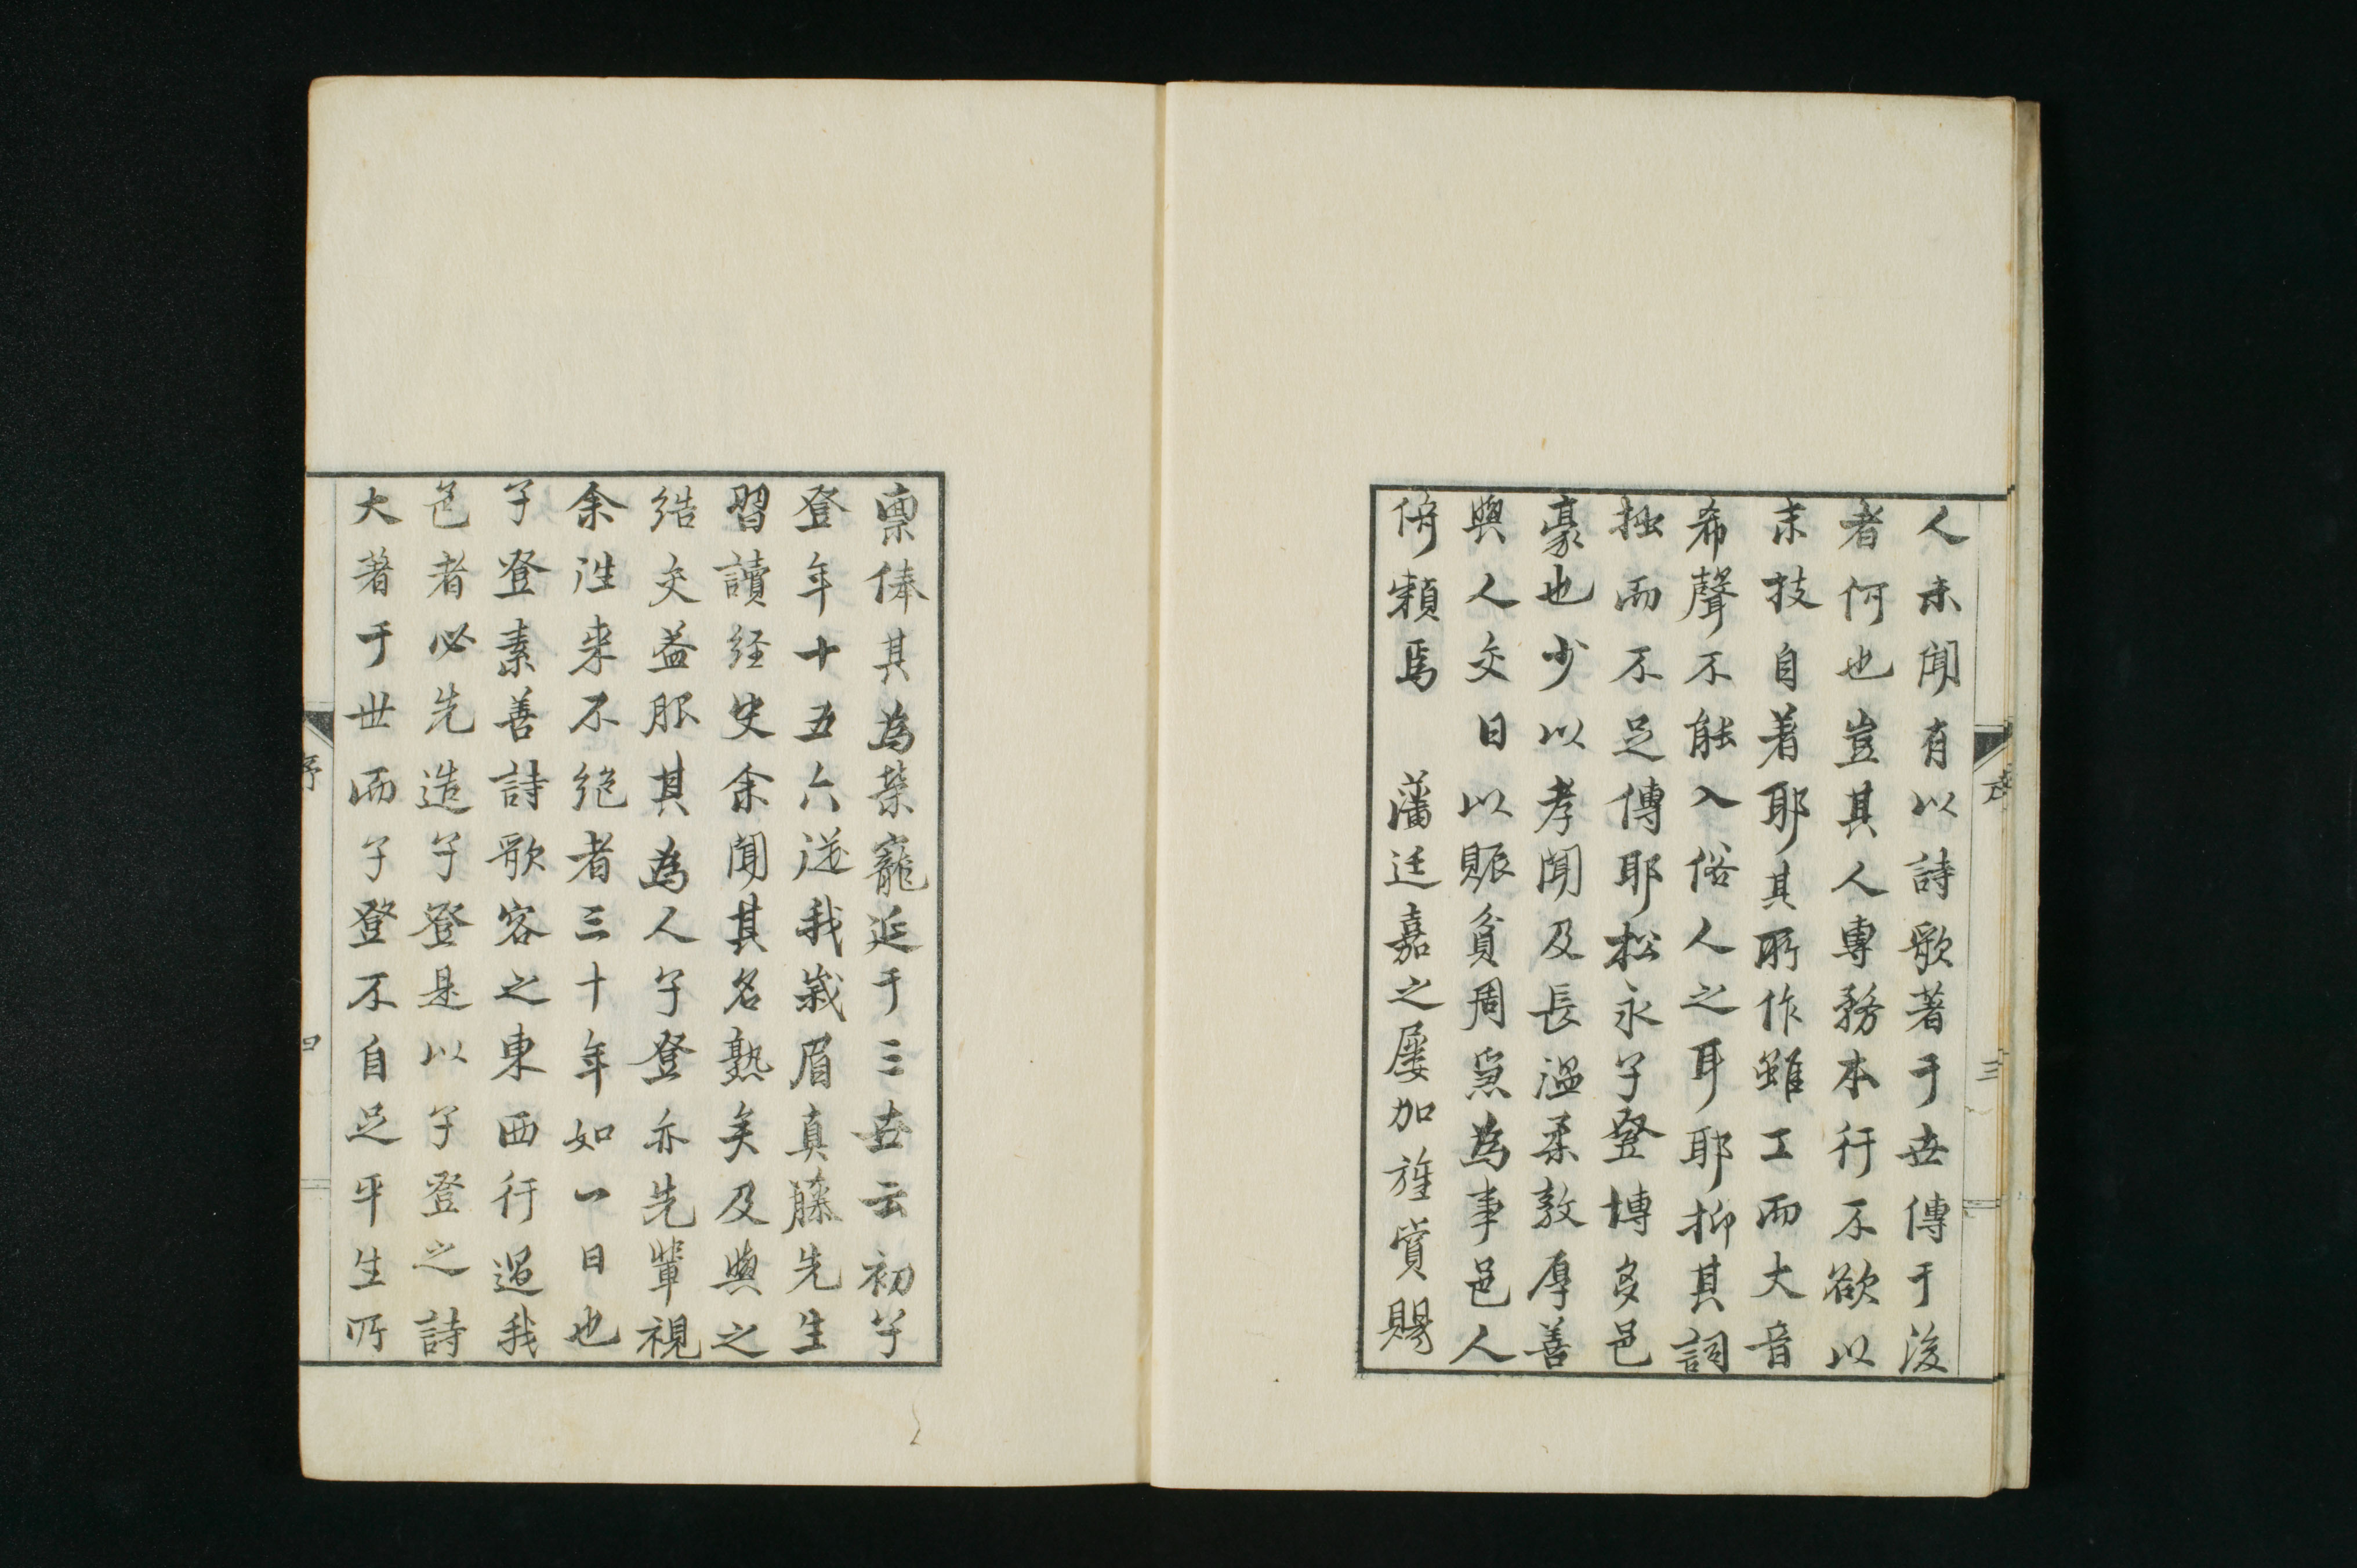 人未聞有以詩歌著于世傳于後
者何也豈其人專務本行不欲以
末技自着耶其所作雖工而大音
希聲不能入俗人之耳耶抑其詞
拙而不足傳耶松永子登博多邑
豪也少以孝聞及長溫柔敦厚善
與人交日以賑貧周窮為事邑人
倚賴焉　藩廷嘉之屢加旌賞賜
序
三
稟俸其為榮寵延于三世云初子
登年十五六從我峩眉真藤先生
習讀經史余聞其名熟矣及與之
結交益服其為人子登亦先輩視
余往来不絕者三十年如一日也
子登素善詩歌客之東西行過我
邑者必先造子登是以子登之詩
大著于世而子登不自足平生所
序
四